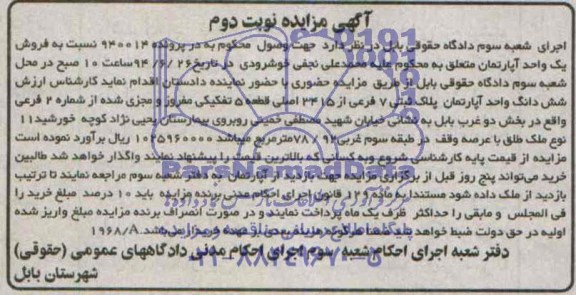 آگهی مزایده نوبت دوم
اجرای شعبه سوم دادگاه حقوقی بابل در نظر دارد جهت وصول محکوم به در پرونده ۹۴۰۰۱۴ نسبت به فروش
یک واحد آپارتمان متعلق به محکوم علیه محمدعلی نجفی خوشرودی در تاریخ ۹۴/۶/۲۶ ساعت ۱۰ صبح در محل
شعبه سوم دادگاه حقوقی بابل از طریق مزایده حضوری با حضور نماینده دادستان اقدام نماید کارشناس ارزش
شش دانگ واحد آپارتمان پلاک ثبتی ۷ فرعی از ۳۴۱۵ اصلی قطعه ۵ تفکیکی مفروز و مجزی شده از شماره ۲ فرعی
واقع در بخش دو غرب بابل به نشانی خیابان شهید مصطفی خمینی روبروی بیمارستان یحیی نژاد کوچه خورشید ۱۱
نوع ملک طلق با عرصه وقف در طبقه سوم غربی ۷۸/۹۲ مترمربع میباشد ۱۰۲۵۹۶۰۰۰۰ ریال برآورد نموده است
مزایده از قیمت پایه کارشناسی شروع و به کسانی که بالاترین قیمت را پیشنهاد نمایند واگذار خواهد شد طالبین
خرید می‌تواند پنج روز قبل از برگزاری مزایده جهت بازدید از آپارتمان به دفتر شعبه سوم مراجعه نمایند تا ترتیب
بازدید از ملک داده شود مستندا به ماده ۱۲۹ قانون اجرای احکام مدنی برنده مزایده باید ۱۰ درصد مبلغ خرید را
فی المجلس و مابقی را حداکثر ظرف یک ماه پرداخت نمایند و در صورت انصراف برنده مزایده مبلغ واریز شده
اولیه در حق دولت ضبط خواهد شد هزینه بعدی به عهده خریدار میباشد ۱۹۶۸/A
دفتر شعبه اجرای احکام شعبه سوم اجرای احکام مدنی دادگاههای عمومی (حقوقی)
شهرستان بابل
ParsNamadData